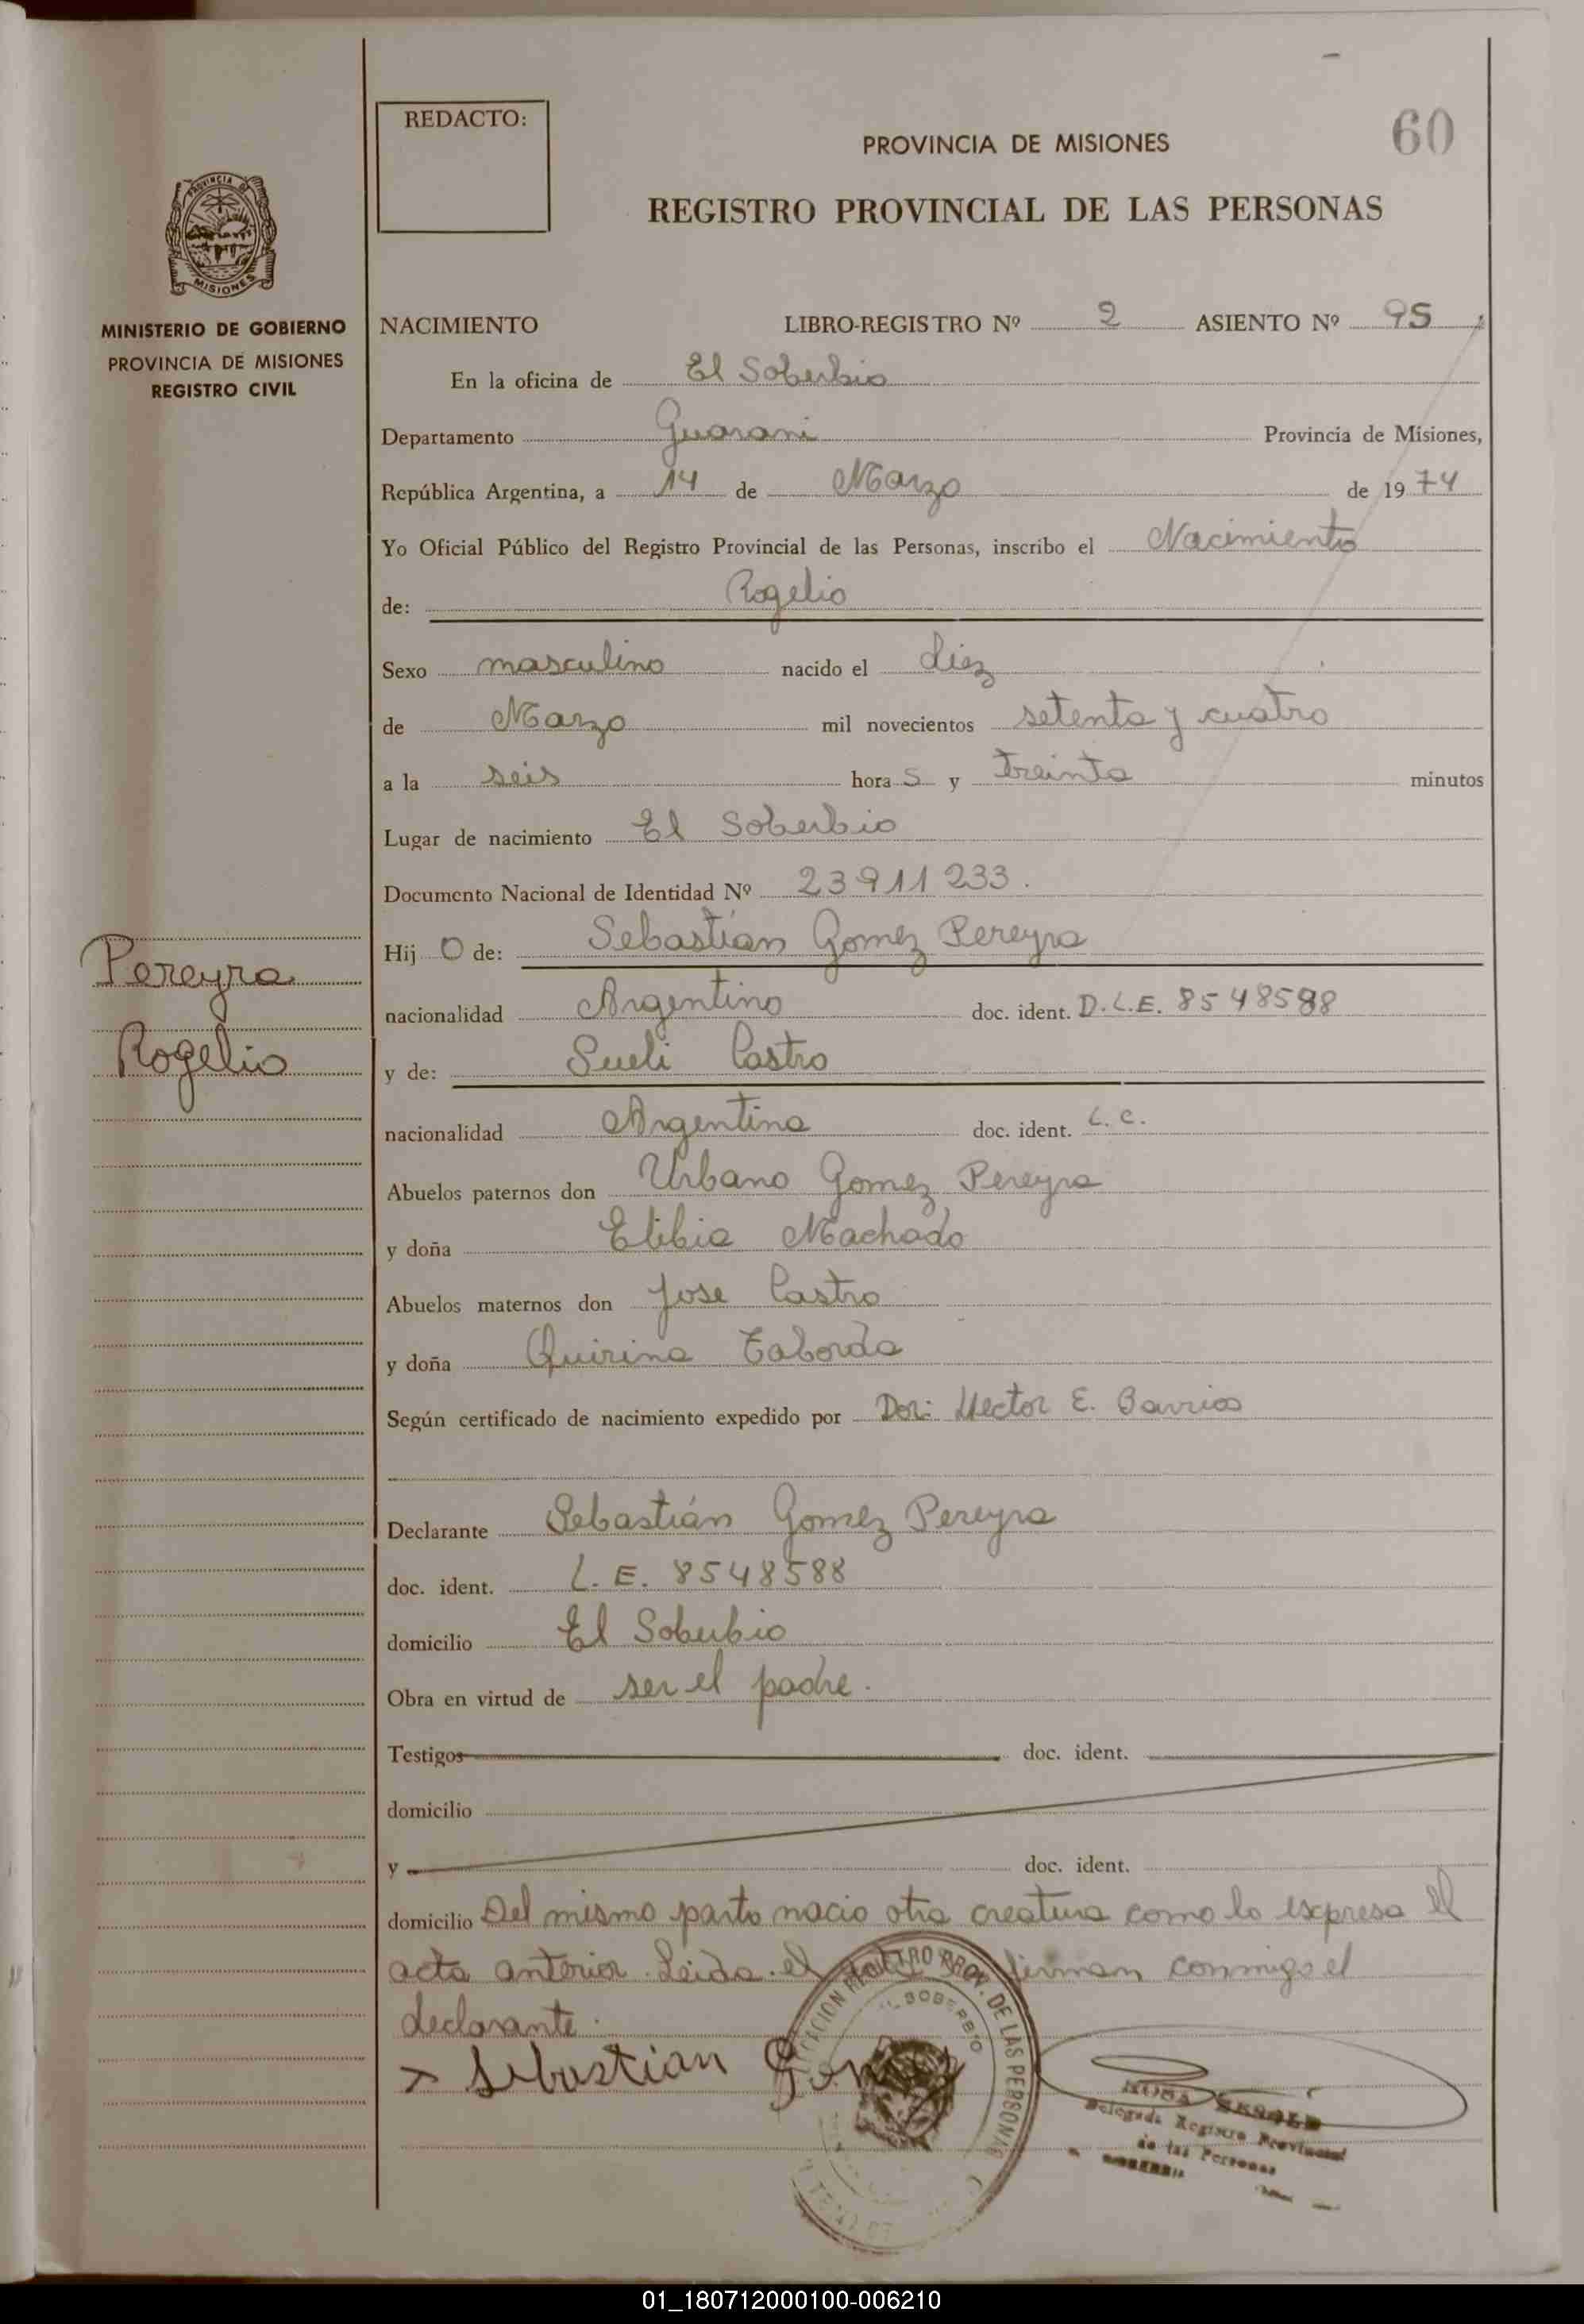 REDACTO:
PROVINCIA DE MISIONES
60
REGISTRO PROVINCIAL DE LAS PERSONAS
PROVINCIA DE
MISIONES
MINISTERIO DE GOBIERNO
PROVINCIA DE MISIONES
REGISTRO CIVIL
NACIMIENTO LIBRO-REGISTRO Nº 2 ASIENTO Nº 95
En la oficina de El Soberbio
Departamento Guarani Provincia de Misiones,
República Argentina, a 14 de Marzo de 1974
Yo Oficial Público del Registro Provincial de las Personas, inscribo el Nacimiento
de: Rogelio
Sexo masculino nacido el diez
de Marzo mil novecientos setenta y cuatro
a la seis hora s y treinta minutos
Lugar de nacimiento El Soberbio
Documento Nacional de Identidad Nº 23911233.
Hij O de: Sebastían Gomez Pereyra
Pereyra
nacionalidad Argentino doc. ident. D.L.E. 8548588
Rogelio
y de: Sueli Castro
nacionalidad Argentina doc. ident. L.C.
Abuelos paternos don Urbano Gomez Pereyra
y doña Elibia Machado
Abuelos maternos don Jose Castro
y doña Quirina Taborda
Según certificado de nacimiento expedido por Dor: Hector E. Barrios
Declarante Sebastián Gomez Pereyra
doc. ident. L.E. 8548588
domicilio El Soberbio
Obra en virtud de ser el padre.
Testigos doc. ident.
domicilio
y doc. ident.
domicilio Del mismo parto nacio otra creatura como lo espresa el
acta anterior. Leida el firman conmigo el
declarante.
Sebastian Gomez
PROV. DE LAS PERSONAS
SOBERBIO
Delegada Registro Provincial
de las Personas
01_180712000100-006210